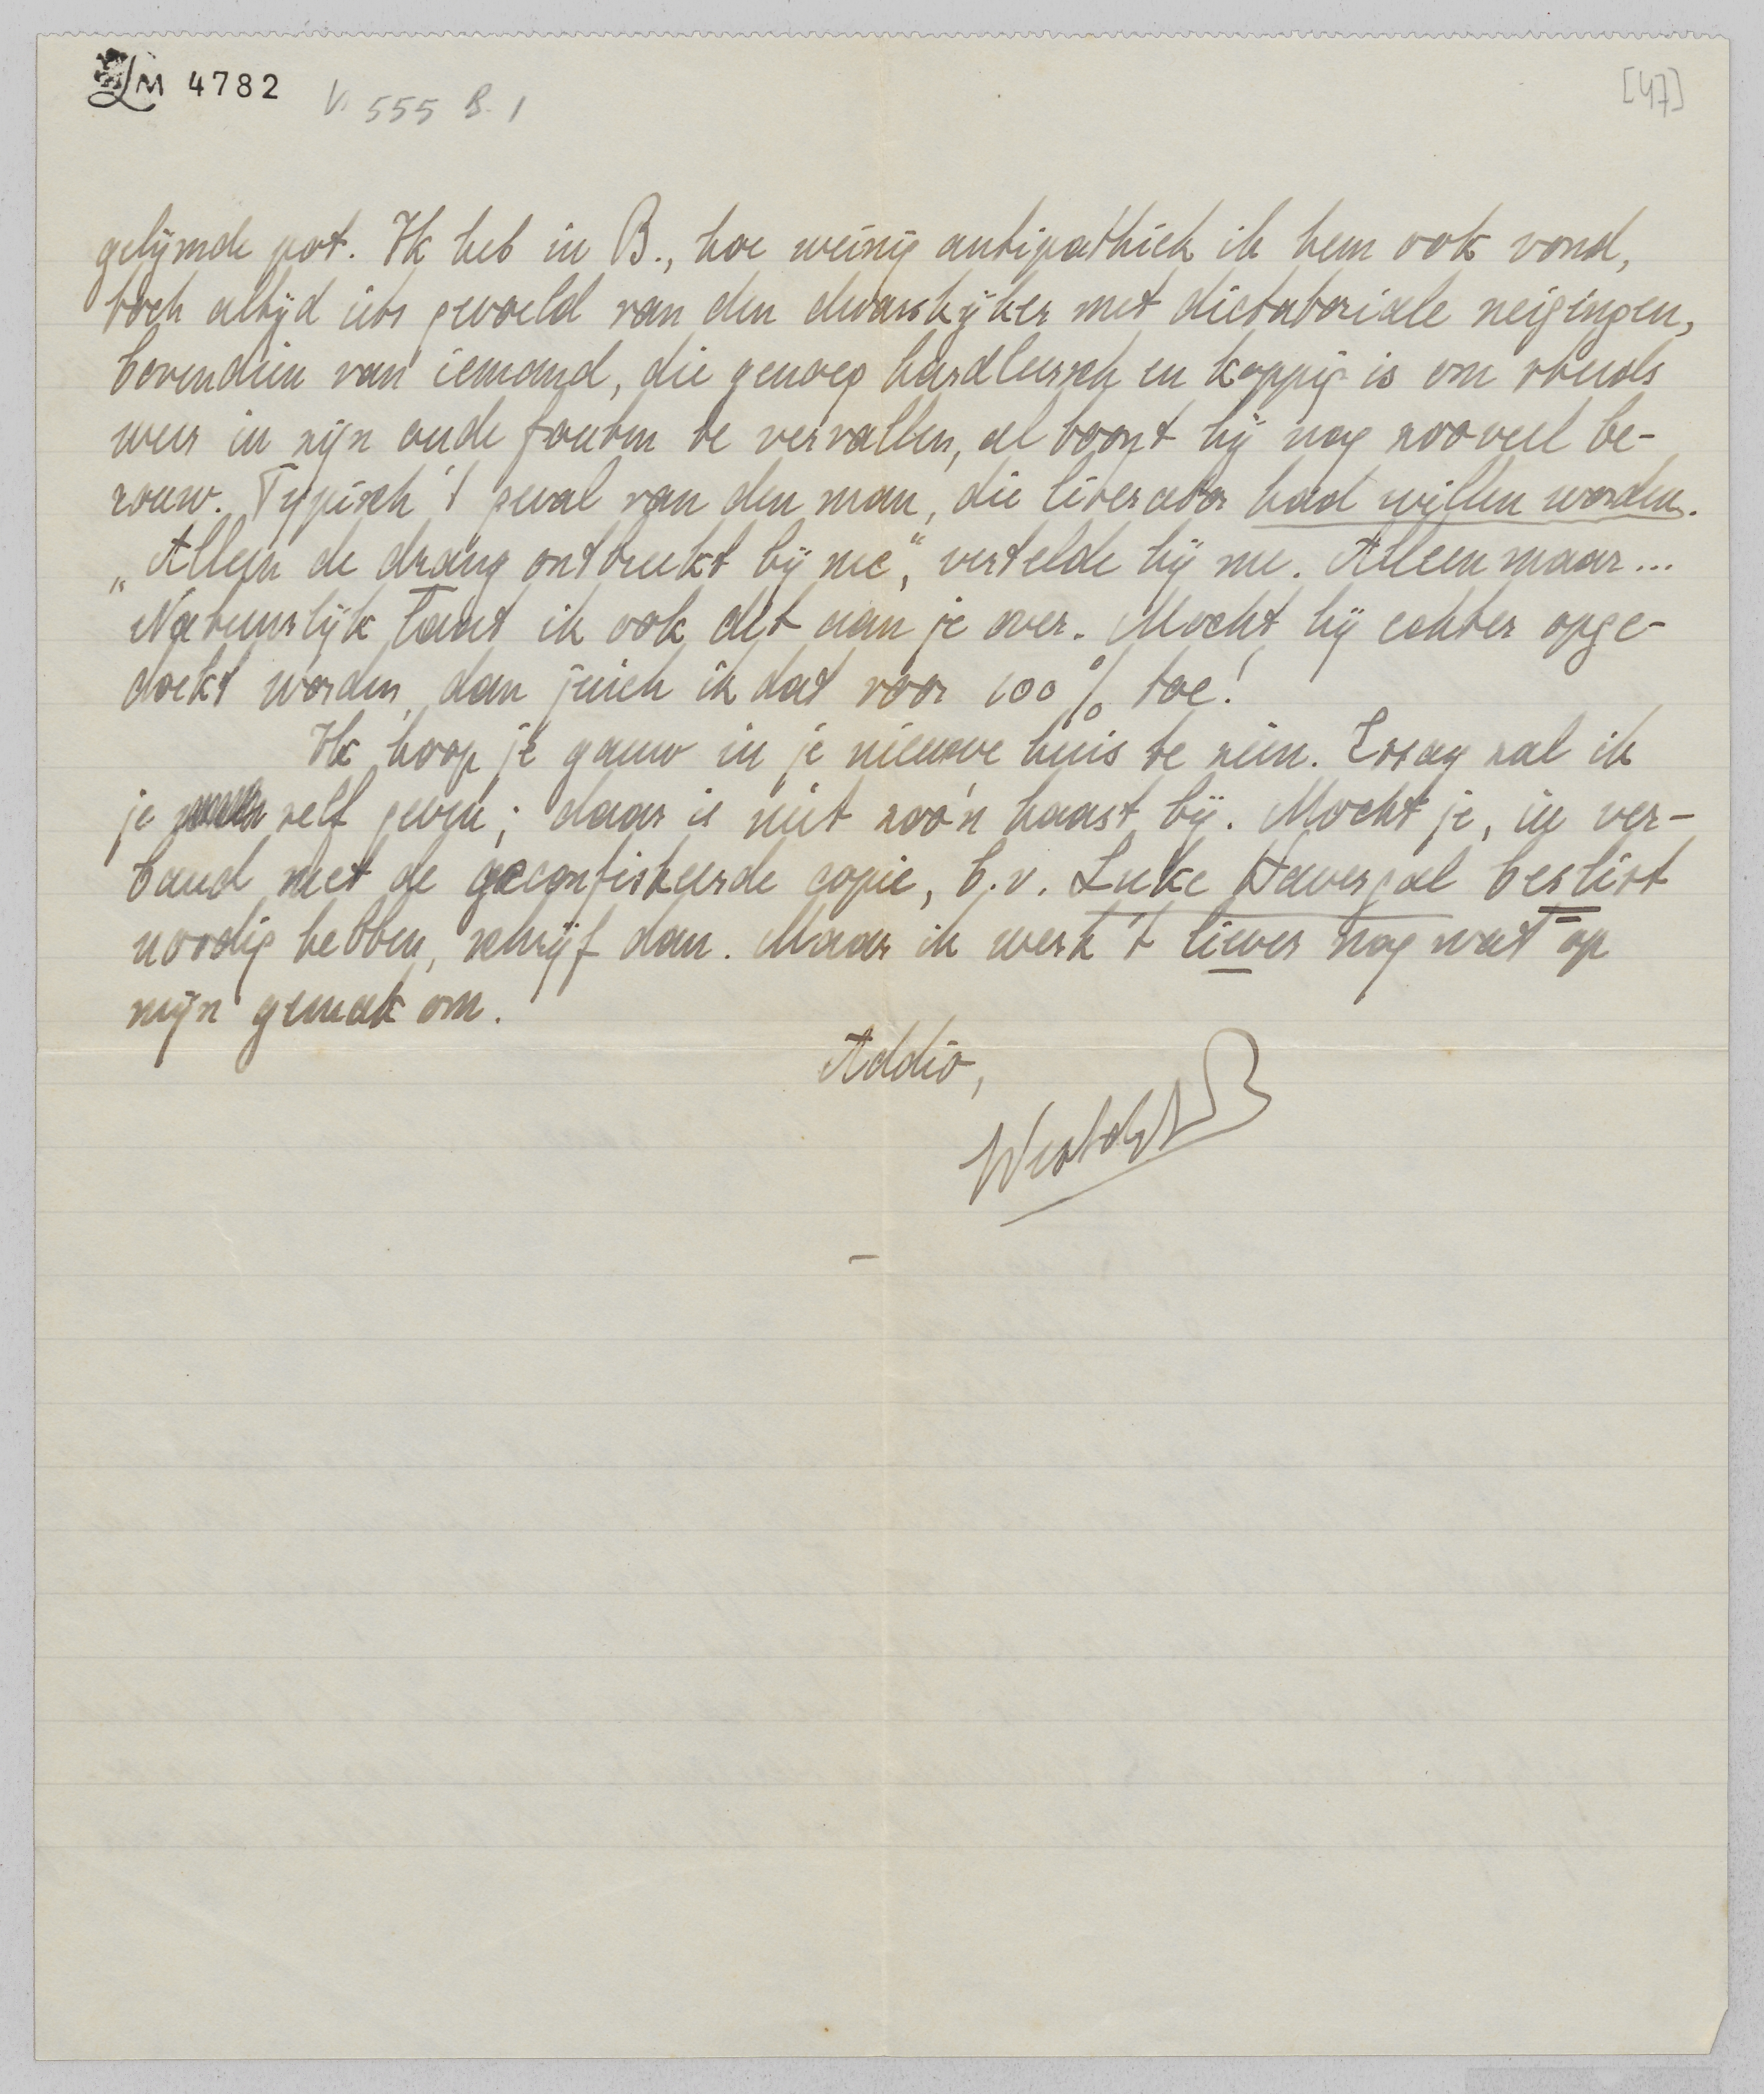 LM 4782 V. 555 B. 1 [47]
gelijmde pot. Ik heb in B., hoe weinig antipathiek ik hem ook vond,
toch altijd iets gevoeld van den dwarskijker met dictatoriale neigingen,
bovendien van iemand, die genoeg hardleersch en koppig is om steeds
weer in zijn oude fouten te vervallen, al toont hij nog zooveel be-
rouw. Typisch 't geval van den man, die literator had willen worden.
„Alleen de drang ontbreekt bij me," vertelde hij me. Alleen maar...
Natuurlijk laat ik ook dit aan je over. Mocht hij echter opge-
doekt worden, dan juich ik dat voor 100% toe!
Ik hoop je gauw in je nieuwe huis te zien. Essay zal ik
je zelf geven; daar is niet zoo'n haast bij. Mocht je, in ver-
band met de geconfiskeerde copie, b.v. Luke Havergal beslist
noodig hebben, schrijf dan. Maar ik werk 't liever nog wat op
mijn gemak om.
Addio,